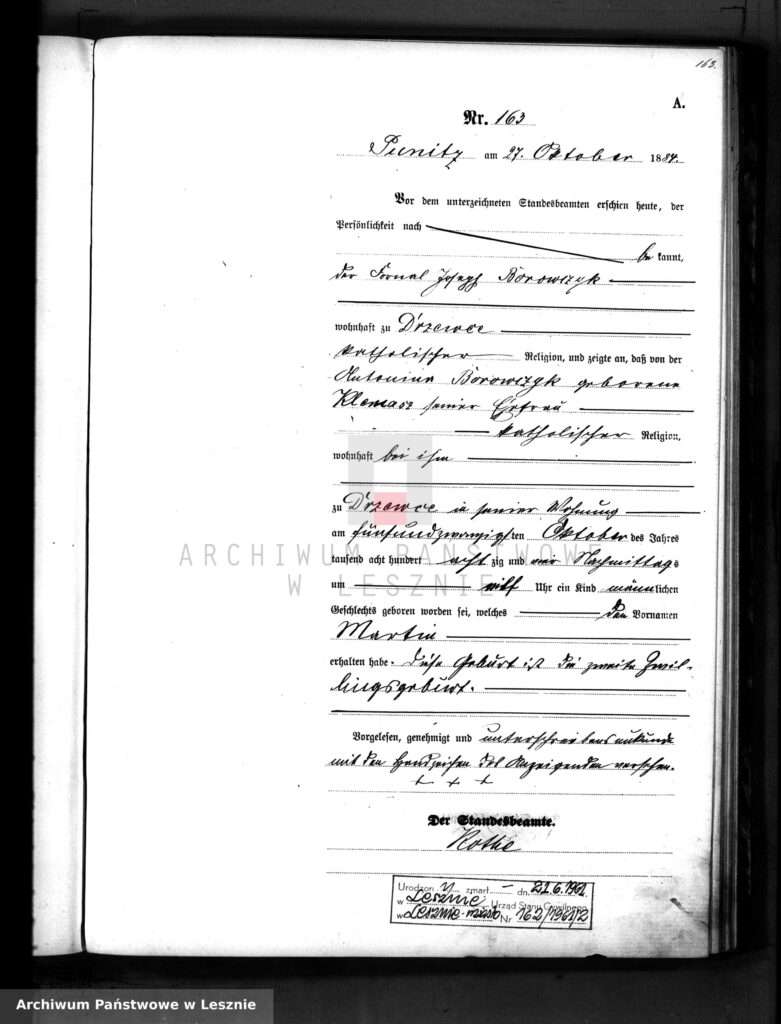 163.
A.
Nr. 163
Punitz am 27. Oktober 1884.
Vor dem unterzeichneten Standesbeamten erschien heute, der
Persönlichkeit nach
be kannt,
der Fornal Joseph Borowczyk
wohnhaft zu Drzewce
katholischer Religion, und zeigte an, daß von der
Antonina Borowczyk geborene
Klemasz seiner Ehefrau
katholischer Religion,
wohnhaft bei ihm
zu Drzewce in seiner Wohnung
am fünfundzwanzigsten Oktober des Jahres
tausend acht hundert achtzig und vier Nachmittags
um Uhr ein Kind männlichen
Geschlechts geboren worden sei, welches den Vornamen
Martin
erhalten habe. Diese Geburt ist die zweite Zwil-
lingsgeburt.
Vorgelesen, genehmigt und unterschreibensunkunde
mit den Handzeichen des Anzeigenden versehen.
+ + +
Der Standesbeamte.
Kothe
Urodzon y zmarł - dn. 21.6.1961
w Lesznie Urząd Stanu Cywilnego
w Lesznie-miasto Nr 162/1961/2
ARCHIWUM PAŃSTWOWE
W LESZNIE
Archiwum Państwowe w Lesznie